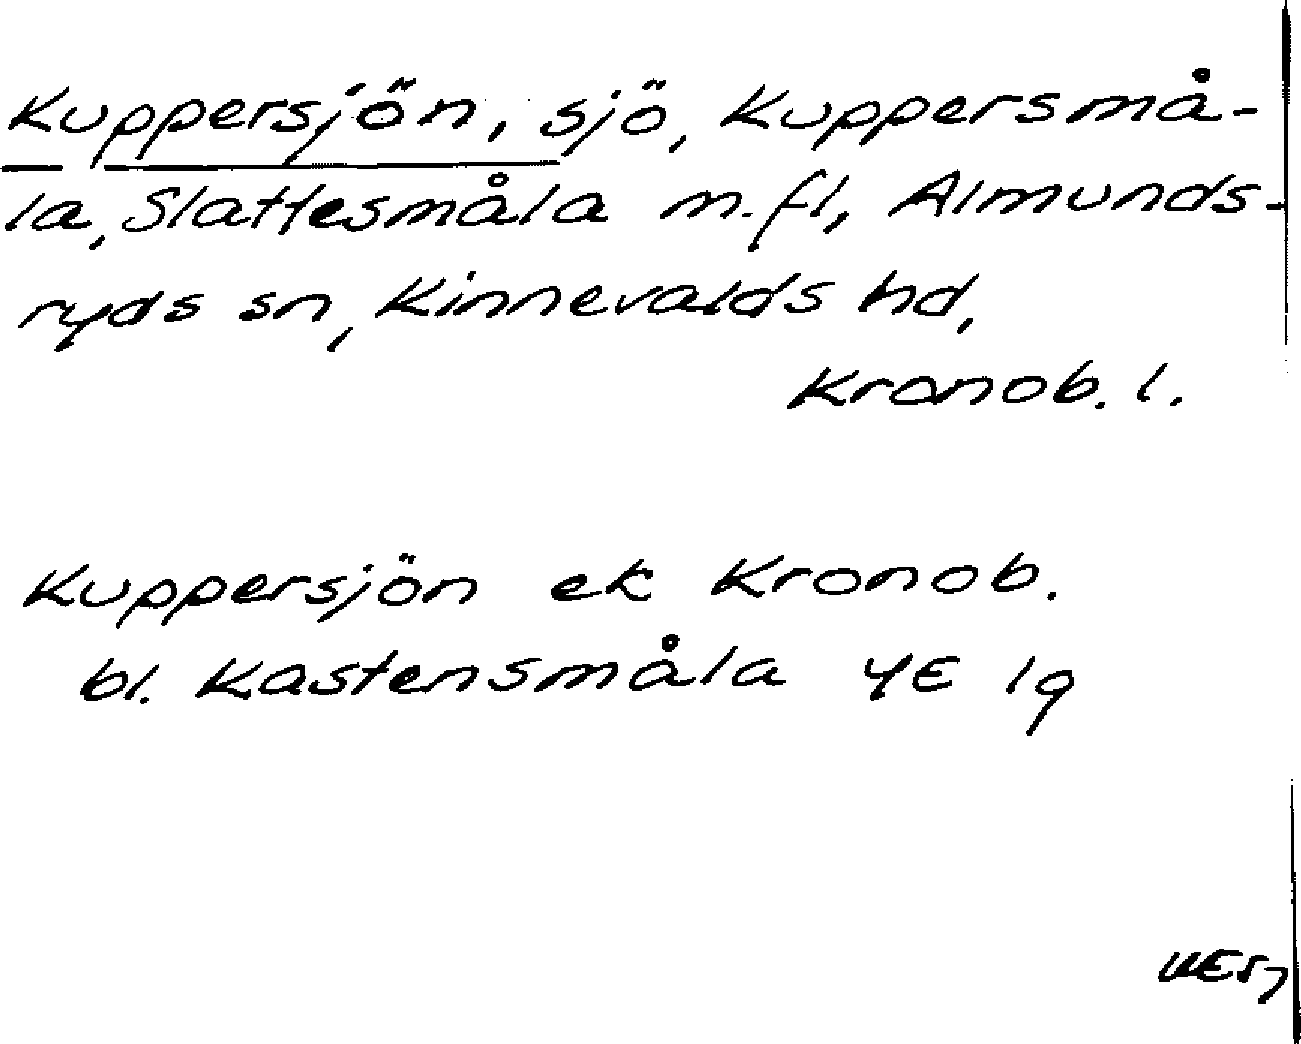 Kuppersjön, sjö, Kuppersmå-
la, Slattesmåla m.fl, Almunds-
ryds sn, Kinnevalds hd,
Kronob. l.
Kuppersjön ek Kronob.
bl. Kastensmåla 4E 1q